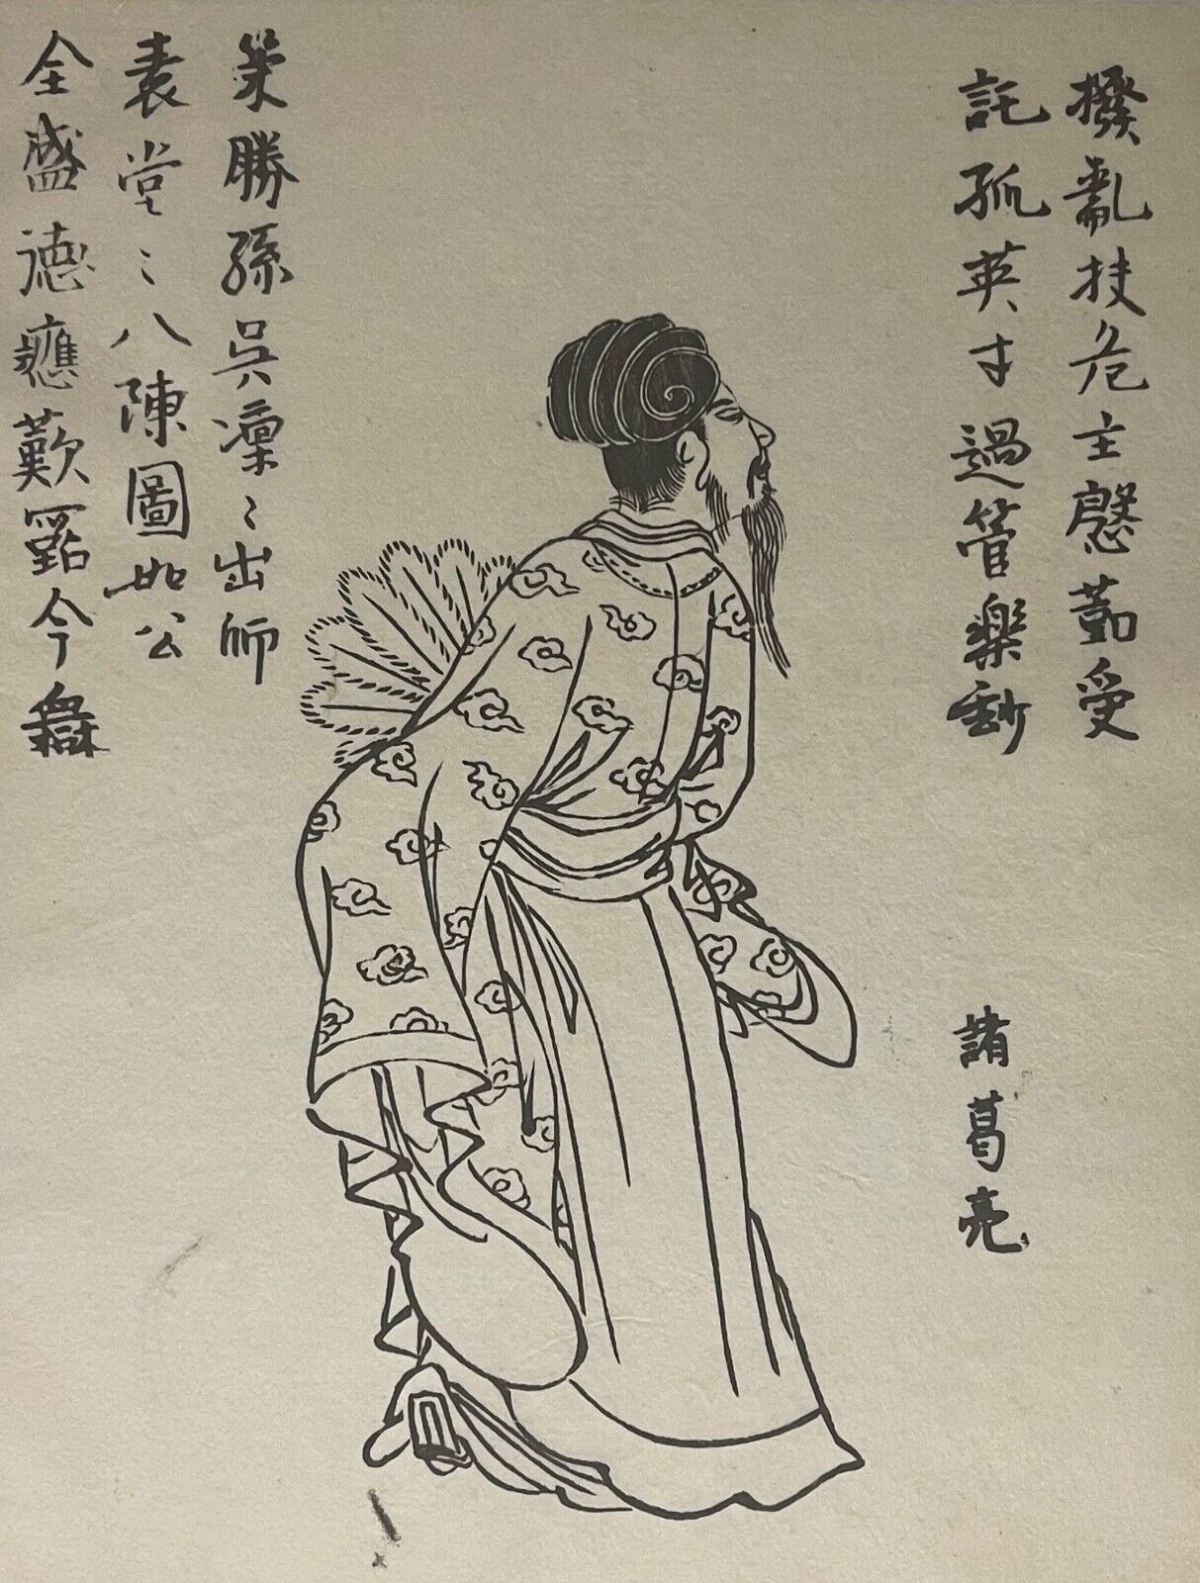 撥亂扶危主慇懃受
託孤英才過管樂玅
諸葛亮
策勝孫吳凜〻出師
表堂〻八陳圖如公
全盛德應歎今無